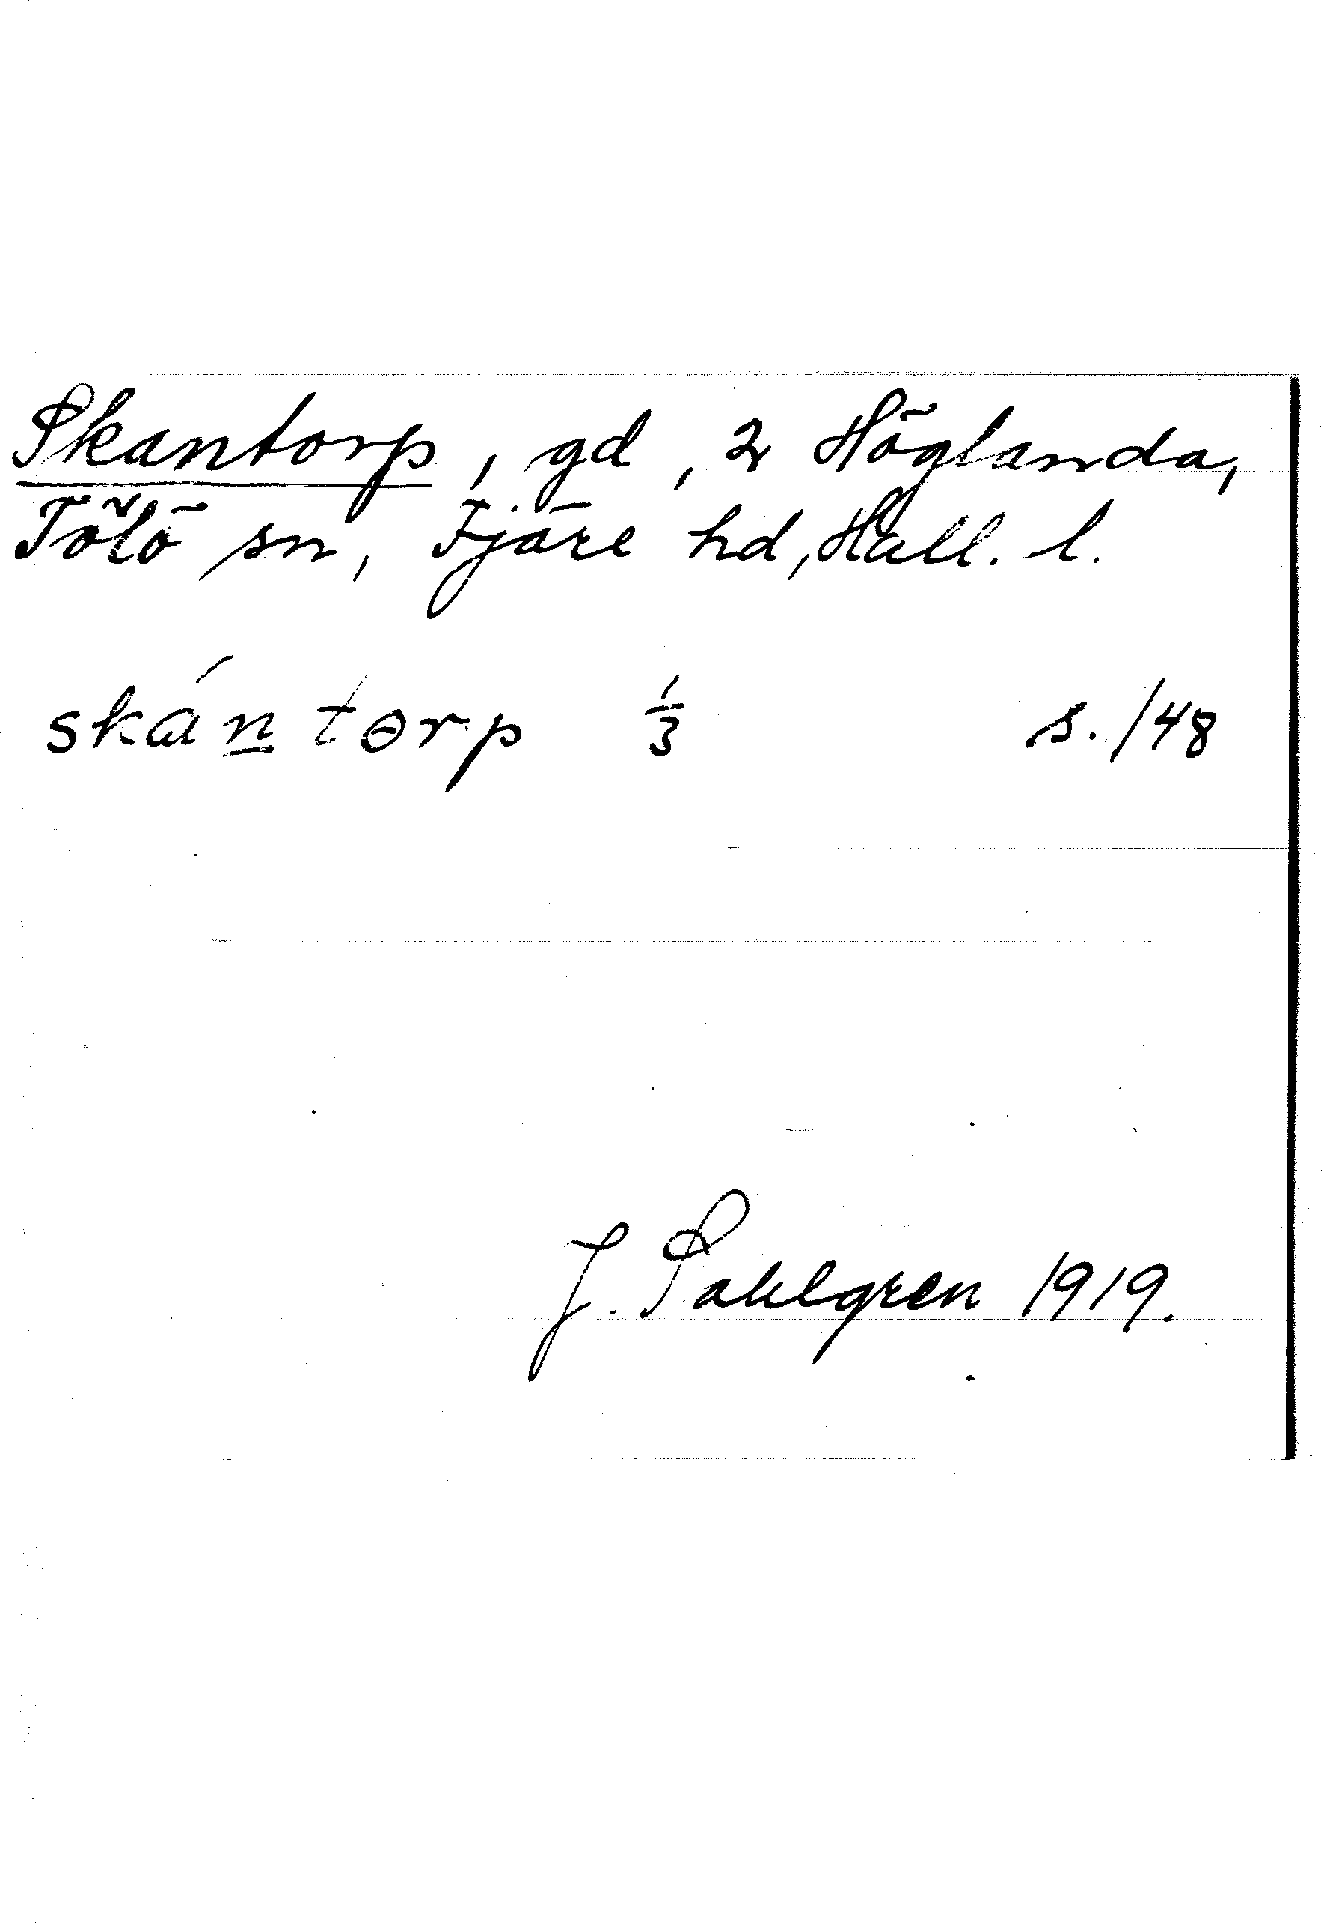 Skantorp, gd, 2 Höglanda,
Tölö sn, Fjäre hd, Hall. l.
skán torp 1/3 s./48
J. Sahlgren 1919.